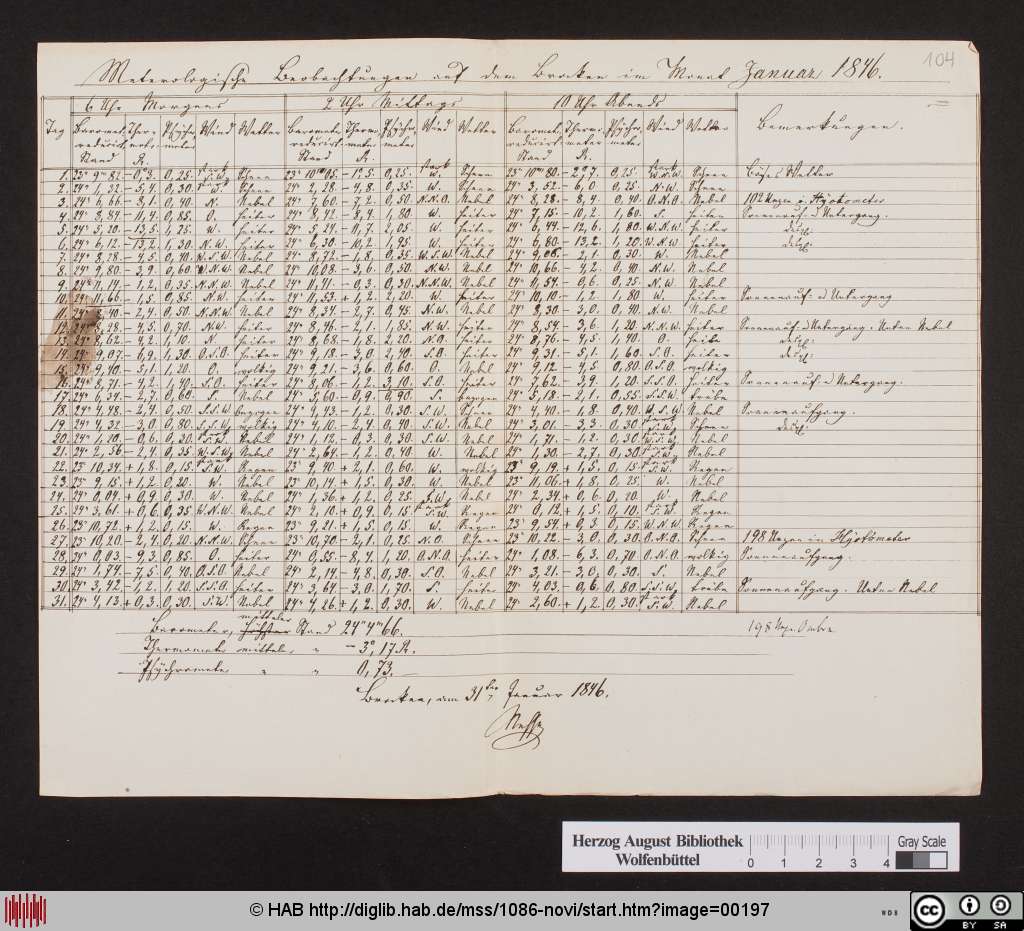 104
Meterologische Beobachtungen auf dem Brocken im Monat Januar 1846.
6 Uhr Morgens 2 Uhr Mittags 10 Uhr Abends
Tag Baromet. Therm. Psychro Wind Wetter Baromet. Therm. Psychr. Wind Wetter Baromet. Therm. Psychr. Wind Wetter Bemerkungen.
reducirt. meter reducirt. meter meter reducirt. meter meter
Stand R. Stand R. Stand R.
1. 0,3. 0,25. S.W. Schnee 12,5. 0,25. W. Schnee 0,25. W.N.W. Schnee Wetter
2. 24" 1,32 - 5,4. 0,30. W. Schnee 24" 2,28. - 4,8. 0,35. W. Schnee 24" 3,52. - 6,0 0,25. N.W. Schnee
3. 24" 6,66 - 8,1. 0,40 N. Nebel 24" 7,60. - 7,2. 0,50 N.N.O. Nebel 24" 8,28. - 8,4. 0,40 O.N.O. Nebel 102
4. 24" 8,84 - 11,4. 0,85. O. heiter 24" 8,42. - 8,4. 1,80 W. heiter 24" 7,15. - 10,2. 1,60. S. heiter Sonnenauf- u Untergang.
5. 24" 5,20 - 13,5. 1,25 W. heiter 24" 5,24. - 0,7. 2,05 W. heiter 24" 6,44. - 12,6. 1,80. W.N.W. heiter
6. 24" 6,12. - 13,2. 1,30. N.W. heiter 24" 6,30. - 10,2. 1,95. W. heiter 24" 6,80 - 13,2. 1,20 W.N.W heiter
7. 24" 8,28 - 4,5. 0,40. W.S.W. Nebel 24" 8,72. - 1,8. 0,35 W.S.W. Nebel 24" 9,06. - 2,1. 0,30. W. Nebel
8. 24" 9,80 - 3,9. 0,60. W.N.W. Nebel 24" 10,08. - 3,6. 0,50 N.W. Nebel 24" 10,66. - 4,2. 0,40 N.W. Nebel
9. 24" 11,14 - 1,2. 0,35 N.N.W. Nebel 24" 11,41. - 0,3. 0,30. N.N.W. Nebel 24" 11,54. - 0,6. 0,25. N.W. Nebel
10. 11,66. - 1,5. 0,85. N.W. heiter 24" 10,53. + 1,2. 2,20 W. heiter 24" 10,10. - 1,2. 1,80 W. heiter Sonnenauf- u Untergang
11. 8,40 - 2,4. 0,50 N.N.W. Nebel 24" 8,34. - 2,7. 0,45. N.W. Nebel 24" 8,30 - 3,0. 0,40. N.W. Nebel
12. 8,28. - 4,5. 0,70. N.W. heiter 24" 8,46. - 2,1. 1,85. N.W. heiter 24" 8,54. - 3,6. 1,20 N.N.W. heiter Sonnenauf- u Untergang. Unten Nebel
13. 24" 8,62 - 4,2. 1,10. N. heiter 24" 8,68. - 1,8. 2,20. N.O. heiter 24" 8,76. - 4,5. 1,40. O. heite
14. 24" 9,07. - 6,9. 1,30. O.S.O. heiter 24" 9,18. - 3,0. 2,40. S.O. heiter 24" 9,31. - 5,1. 1,60. S.O. heiter
15. 24" 9,40 - 5,1. 1,20. O. wolkig 24" 9,21. - 3,6. 0,60. O. Nebel 24" 9,12. - 4,5 0,80 O.S.O. wolkig
16. 24" 8,71 - 4,2. 1,40. S.O. heiter 24" 8,06. - 1,2. 3,10. S.O. heiter 24" 7,62. - 3,9. 1,20. S.S.O. heiter Sonnenauf- u Untergang.
17. 24" 6,34. - 2,7. 0,60. S. Nebel 24" 5,60. - 0,9. 0,90. S. bezogen 24" 5,18. - 2,1. 0,55. S.S.W. trübe
18. 24" 4,48. - 2,4. 0,50. S.S.W. bezogen 24" 4,43. - 1,2. 0,30. S.W. Schnee 24" 4,40. - 1,8. 0,40. S.W. Nebel Sonnenaufgang.
19. 24" 4,32 - 3,0. 0,80. S.S.W. wolkig 24" 4,10. - 2,4. 0,40. S.W. Nebel 24" 3,01. - 3,3. 0,30. S.W. Schnee
20. 24" 1,10. - 0,6. 0,20. S.W. Nebel 24" 1,12. - 0,3. 0,30. S.W. Nebel 24" 1,71. - 1,2. 0,30. W.S.W. Nebel
21. 24" 2,56 - 2,4. 0,35 W.S.W. Nebel 24" 2,64. - 1,2. 0,40 W. Nebel 24" 1,30. - 2,7. 0,30. S.W. Nebel
22. 23" 10,34. + 1,8. 0,15. S.W. Regen 23" 9,40 + 2,1. 0,60. W. wolkig 23" 9,19. + 1,5. 0,15. S.W. Regen
23. 23" 9,15. + 1,2. 0,20. W. Nebel 23" 10,14. + 1,5. 0,30. W. Nebel 23" 11,06. + 1,8. 0,25. W. Nebel
24. 24" 0,04. + 0,9. 0,30. W. Nebel 24" 1,36. + 1,2. 0,25. S.W. Nebel 24" 2,34. + 0,6. 0,20. W. Nebel
25. 24" 3,61. + 0,6. 0,35 W.N.W. Nebel 24" 2,10. + 0,9. 0,15. S.W. Regen 24" 0,12. + 1,5. 0,10. S.W. Regen
26. 23" 10,72. + 1,2. 0,15. W. Regen 23" 9,21. + 1,5. 0,15. W. Regen 23" 9,54. + 0,3. 0,15. W.N.W. Regen
27. 23" 10,20. - 2,4. 0,20. N.N.W. Schnee 23" 10,70. - 2,1. 0,25. N.O. Schnee 23" 10,22. - 3,0. 0,30. O.N.O. Schnee 198
28. 24" 0,03. - 9,3. 0,85. O. heiter 24" 0,55. - 8,4. 1,20. O.N.O. heiter 24" 1,08. - 6,3. 0,70. O.N.O. wolkig Sonnenaufgang.
29. 24" 1,74. - 7,5. 0,40. O.S.O. Nebel 24" 2,14. - 4,8. 0,30. S.O. Nebel 24" 3,21. - 3,0. 0,30. S. Nebel
30. 24" 3,42. - 1,2. 1,20. S.S.O. heiter 24" 3,64. - 3,0. 1,70. S. heiter 24" 4,03. - 0,6. 0,80. S.S.W. trübe Sonnenaufgang. Unten Nebel
31. 24" 4,13. + 0,3. 0,30. S.W. Nebel 24" 4,26. + 1,2. 0,30. W. Nebel 24" 2,60. + 1,2. 0,30. S.W. Nebel
mittlerer
Barometer, höchster Stand 24" 4"' 66. 198
Thermomete mittele " - 3°, 17 R.
Psychromete " " 0,73.
Brocken, am 31ten Januar 1846.
Herzog August Bibliothek
Wolfenbüttel
0 1 2 3 4
Gray Scale
© HAB http://diglib.hab.de/mss/1086-novi/start.htm?image=00197
WDB
cc BY SA